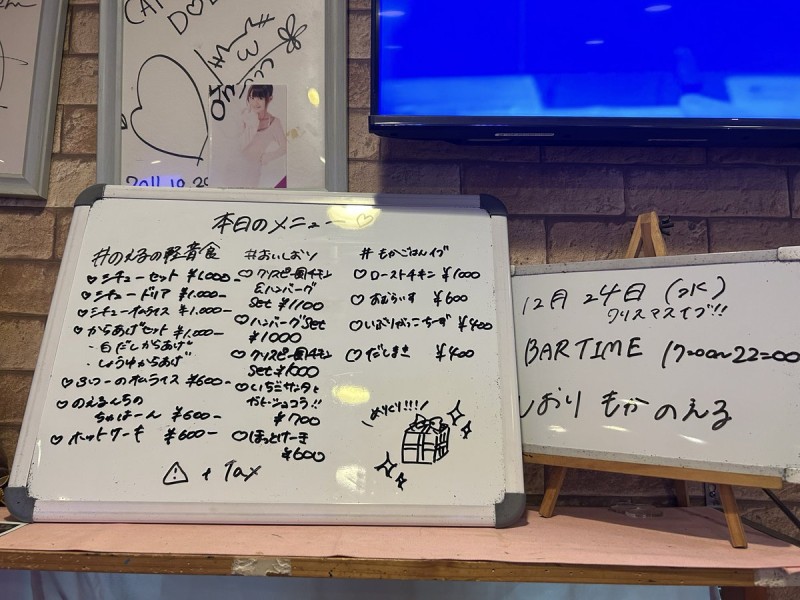 DOLL
2011.10.29
本日のメニュー♡
#のえるの軽音食
♡シチューセット ¥1,000-
♡シチュードリア ¥1,000-
♡シチューオムライス ¥1,000-
♡からあげセット ¥1,000-
・白だしからあげ
・しょうゆからあげ
♡ふつーのオムライス ¥600-
♡のえるんちの
ちゃはーん ¥600-
♡ホットケーキ ¥600-
#おいしおり
♡クリスピー風チキン
&ハンバーグ
Set ¥1100
♡ハンバーグSet
¥1000
♡クリスピー風チキン
Set ¥1000
♡いちごサンタと
ガトーショコラ!!
¥700
♡ほっとけーき
¥600
#もかごはんイブ
♡ローストチキン ¥1000
♡おむらいす ¥600
♡いぶりがっこちーず ¥400
♡だしまき ¥400
めりくり!!!
⚠ + Tax
12月 24日 (水)
クリスマスイブ!!
BARTIME 17:00~22:00
しおり もか のえる